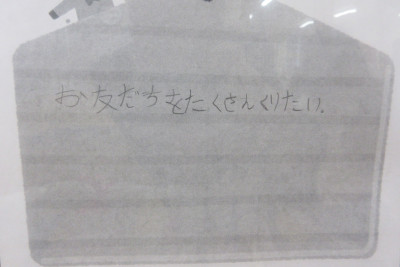 お友だちをたくさんくりたい。